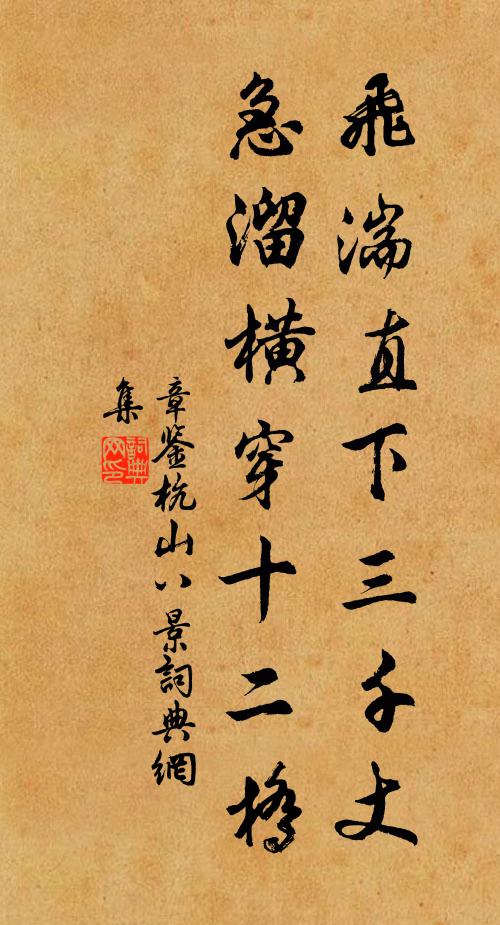 飛湍直下三千丈
急溜橫穿十二橋
章鉴杭山八景詞典網
集
詞典網印